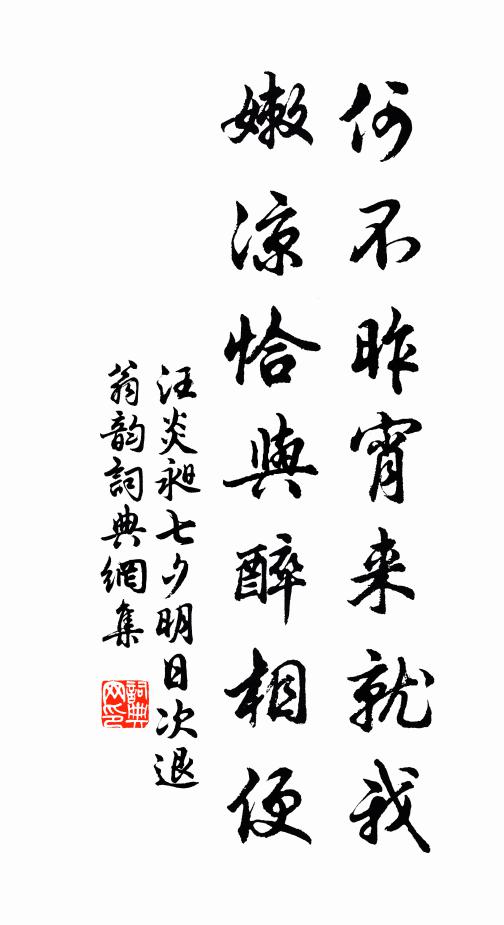 何不昨宵来就我
嫩涼恰與醉相便
汪炎昶七夕明日次退
翁韵詞典網集
詞典
网印